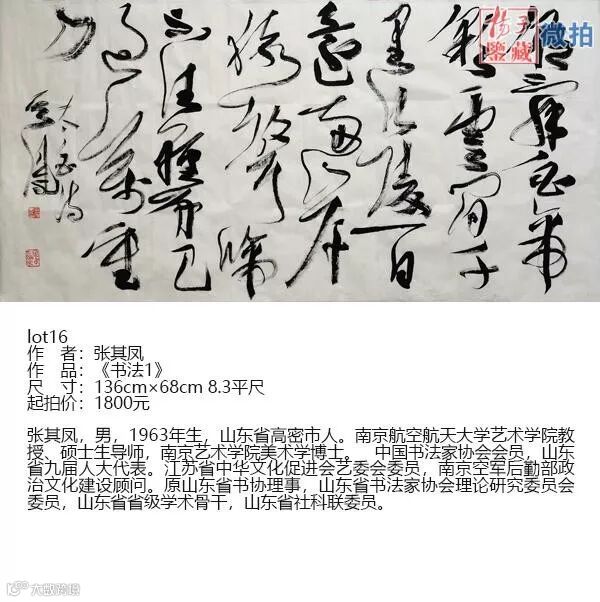 扬子鑒藏 微拍
朝辞白帝
彩雲間千
里江陵一日
還兩岸
猿聲啼
不住輕舟已
過萬重
山
太白詩
lot16
作 者：张其凤
作 品：《书法1》
尺 寸：136cm×68cm 8.3平尺
起拍价：1800元
张其凤，男，1963年生，山东省高密市人。南京航空航天大学艺术学院教
授、硕士生导师，南京艺术学院美术学博士。 中国书法家协会会员，山东
省九届人大代表。江苏省中华文化促进会艺委会委员，南京空军后勤部政
治文化建设顾问。原山东省书协理事，山东省书法家协会理论研究委员会
委员，山东省省级学术骨干，山东省社科联委员。
大数跨境